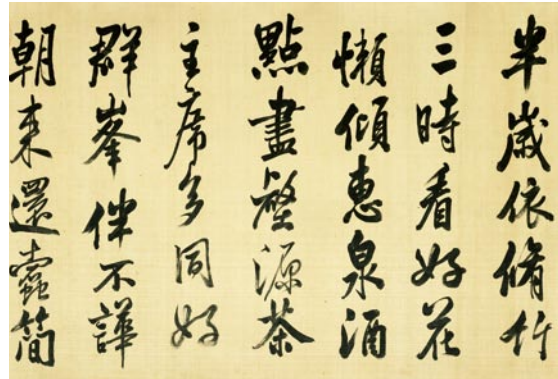 半歲依脩竹
三時看好花
懶傾惠泉酒
點盡壑源茶
主席多同好
群峯伴不譁
朝来還蠹簡